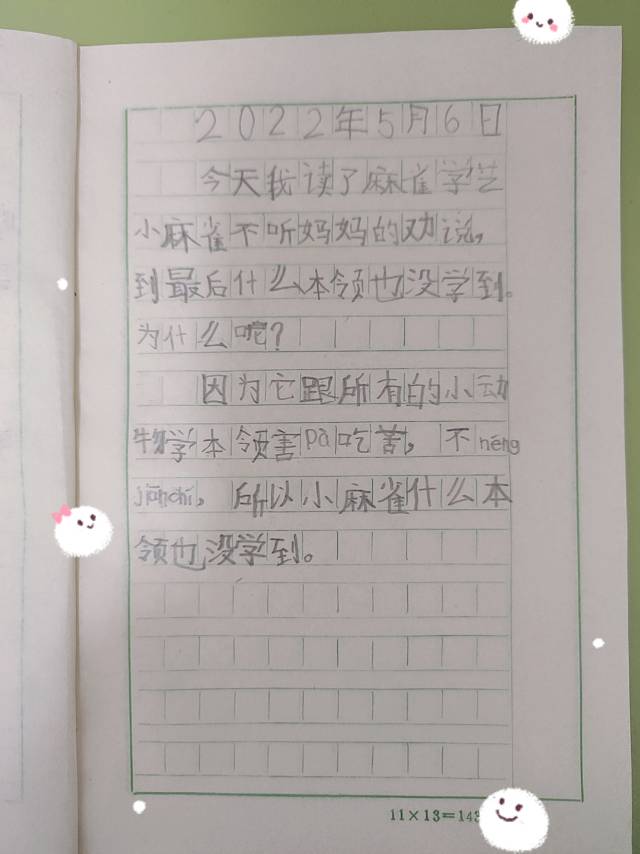 2022年5月6日
今天我读了麻雀学艺
小麻雀不听妈妈的劝说,
到最后什么本领也没学到。
为什么呢?
因为它跟所有的小动
物学本领害pà吃苦,不néng
jiānchí,所以小麻雀什么本
领也没学到。
11×13=143